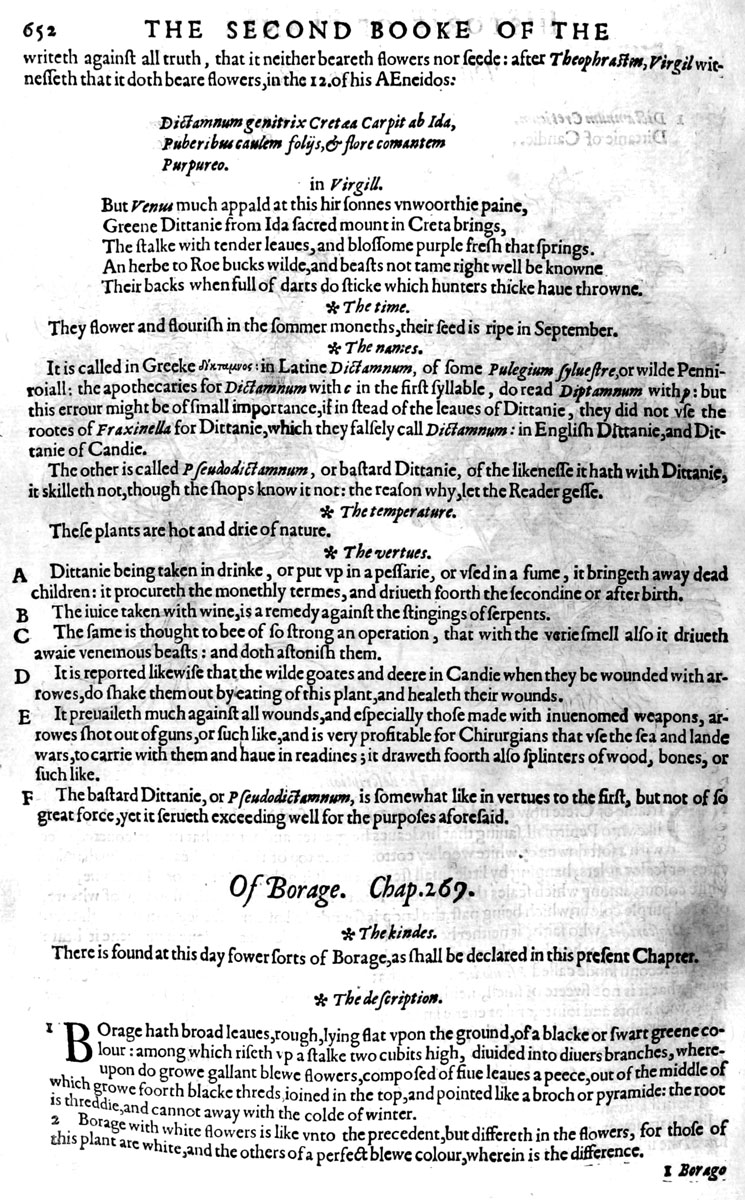 652 THE SECOND BOOKE OF THE
writeth againſt all truth, that it neither beareth flowers nor ſeede: after Theophraſtus, Virgil wit-
neſſeth that it doth beare flowers, in the 12. of his AEneidos:
Dictamnum genitrix Cretæa Carpit ab Ida,
Puberibus caulem folijs, & flore comantem
Purpureo.
in Virgill.
But Venus much appald at this hir ſonnes vnwoorthie paine,
Greene Dittanie from Ida ſacred mount in Creta brings,
The ſtalke with tender leaues, and bloſſome purple freſh that ſprings.
An herbe to Roe bucks wilde, and beaſts not tame right well be knowne
Their backs when full of darts do ſticke which hunters thicke haue throwne.
* The time.
They flower and flouriſh in the ſommer moneths, their ſeed is ripe in September.
* The names.
It is called in Greeke δίκταμνος: in Latine Dictamnum, of ſome Pulegium ſylueſtre, or wilde Penni-
roiall: the apothecaries for Dictamnum with c in the firſt ſyllable, do read Diptamnum with p: but
this errour might be of ſmall importance, if in ſtead of the leaues of Dittanie, they did not vſe the
rootes of Fraxinella for Dittanie, which they falſely call Dictamnum: in Engliſh Dittanie, and Dit-
tanie of Candie.
The other is called Pſeudodictamnum, or baſtard Dittanie, of the likeneſſe it hath with Dittanie,
it skilleth not, though the ſhops know it not: the reaſon why, let the Reader geſſe.
* The temperature.
Theſe plants are hot and drie of nature.
* The vertues.
A Dittanie being taken in drinke, or put vp in a peſſarie, or vſed in a fume, it bringeth away dead
children: it procureth the monethly termes, and driueth foorth the ſecondine or after birth.
B The iuice taken with wine, is a remedy againſt the ſtingings of ſerpents.
C The ſame is thought to bee of ſo ſtrong an operation, that with the verie ſmell alſo it driueth
awaie venemous beaſts: and doth aſtoniſh them.
D It is reported likewiſe that the wilde goates and deere in Candie when they be wounded with ar-
rowes, do ſhake them out by eating of this plant, and healeth their wounds.
E It preuaileth much againſt all wounds, and eſpecially thoſe made with inuenomed weapons, ar-
rowes ſhot out of guns, or ſuch like, and is very profitable for Chirurgians that vſe the ſea and lande
wars, to carrie with them and haue in readines; it draweth foorth alſo ſplinters of wood, bones, or
ſuch like.
F The baſtard Dittanie, or Pſeudodictamnum, is ſomewhat like in vertues to the firſt, but not of ſo
great force, yet it ſerueth exceeding well for the purpoſes aforeſaid.
Of Borage. Chap. 269.
* The kindes.
There is found at this day fower ſorts of Borage, as ſhall be declared in this preſent Chapter.
* The deſcription.
1 BOrage hath broad leaues, rough, lying flat vpon the ground, of a blacke or ſwart greene co-
lour: among which riſeth vp a ſtalke two cubits high, diuided into diuers branches, where-
upon do growe gallant blewe flowers, compoſed of fiue leaues a peece, out of the middle of
which growe foorth blacke threds ioined in the top, and pointed like a broch or pyramide: the root
is threddie, and cannot away with the colde of winter.
2 Borage with white flowers is like vnto the precedent, but differeth in the flowers, for thoſe of
this plant are white, and the others of a perfect blewe colour, wherein is the difference.
1 Borago